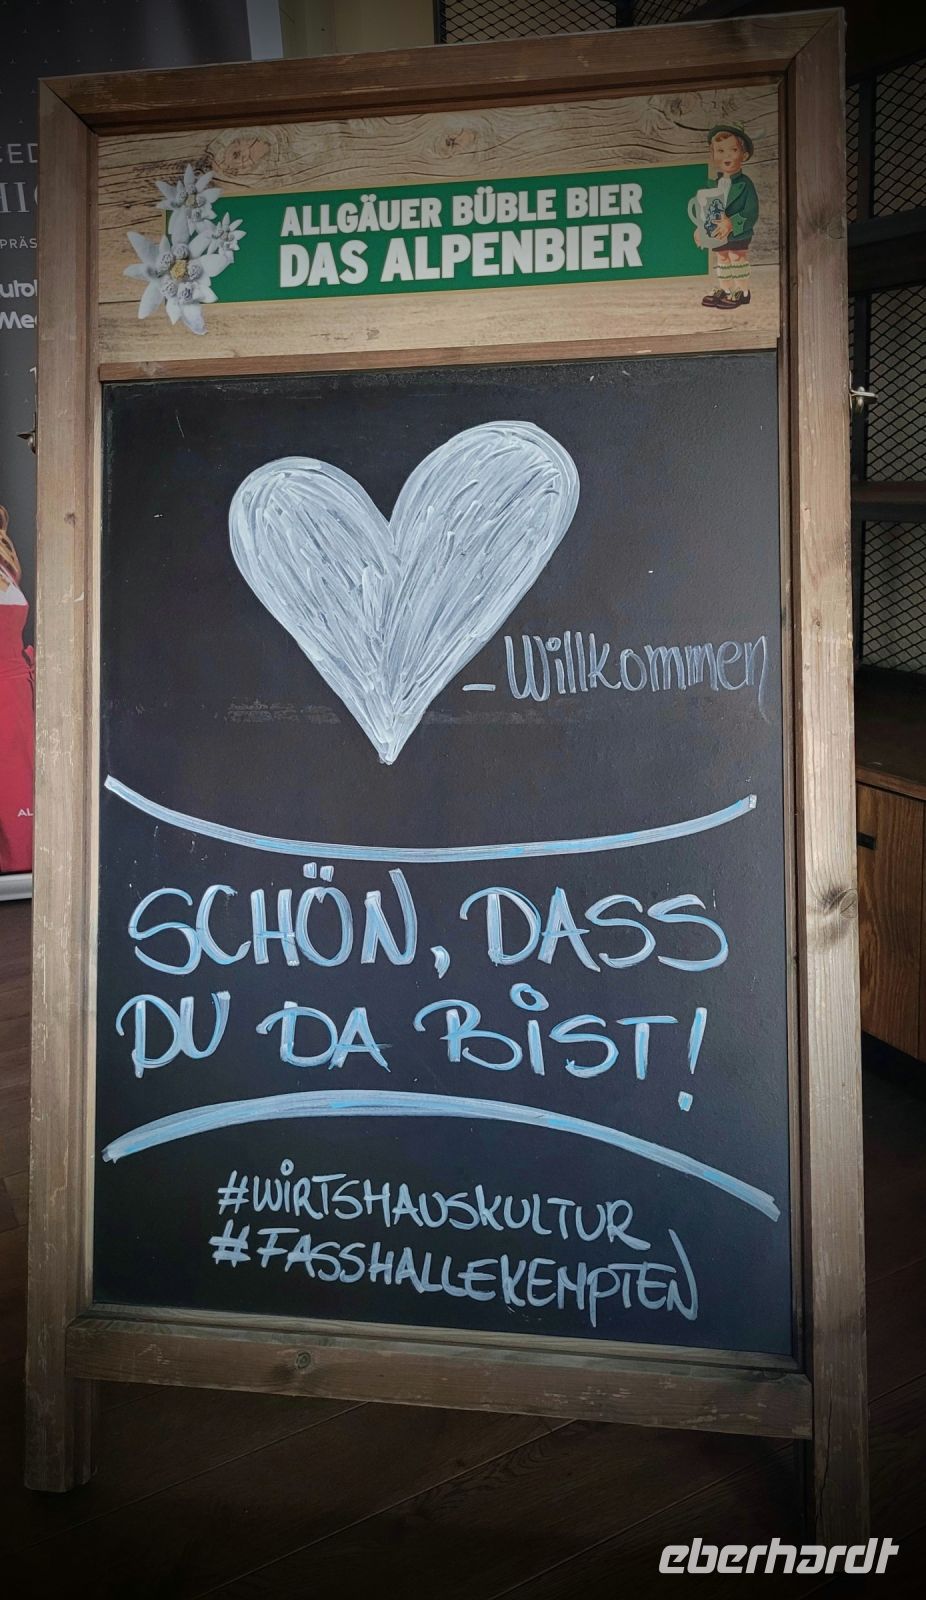 ALLGÄUER BÜBLE BIER
DAS ALPENBIER
-Willkommen
SCHÖN, DASS
DU DA BiST!
#WiRTSHAUSKULTUR
#FASSHALLEKEMPTEN
eberhardt